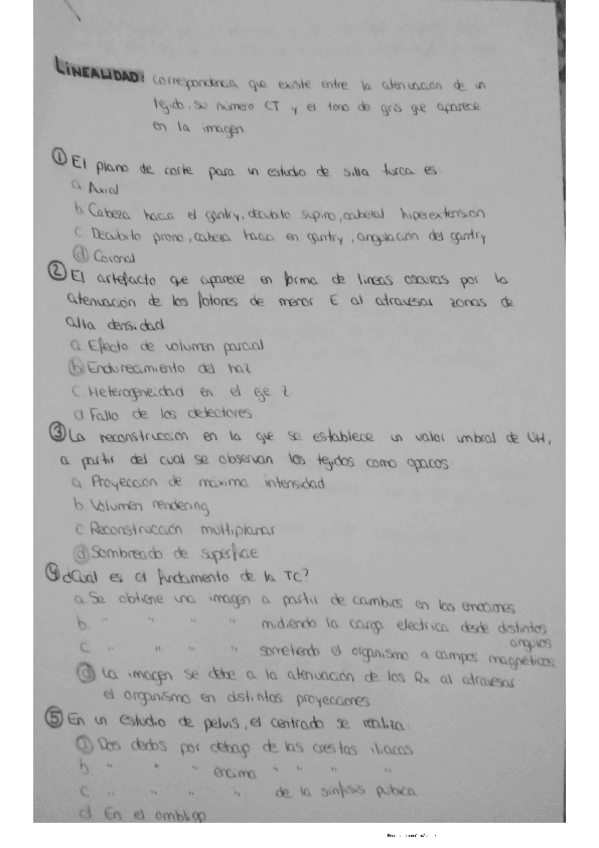 LINEALIDAD: correspondencia que existe entre la atenuación de un
tejido, su número CT y el tono de gris que aparece
en la imagen
① El plano de corte para un estudio de silla turca es
a Axial
b. Cabeza hacia el gantry, decubito supino, cabezal hiperextension
c Decubito prono, cabeza hacia en gantry, angulación del gantry
d Coronal
② El artefacto que aparece en forma de lineas oscuras por la
atenuación de los fotones de menor E al atravesar zonas de
alta densidad
a Efecto de volumen parcial
b Endurecimiento del haz
c Heterogeneidad en el eje z
d Fallo de los detectores
③ La reconstruccion en la que se establece un valor umbral de UH,
a partir del cual se observan los tejidos como opacos
a Proyección de máxima intensidad
b Volumen rendering
c Reconstrucción multiplanar
d Sombreado de superficie
④ ¿Cual es el fundamento de la TC?
a. Se obtiene una imagen a partir de cambios en las emociones
b " " " " midiendo la carga electrica desde distintos
angulos
c " " " " sometiendo el organismo a campos magneticos
d La imagen se debe a la atenuación de los Rx al atravesar
el organismo en distintas proyecciones
⑤ En un estudio de pelvis, el centrado se realiza
a Dos dedos por debajo de las crestas iliacas
b " " " encima " " " "
c " " " " de la sinfisis pubica
d. En el ombligo